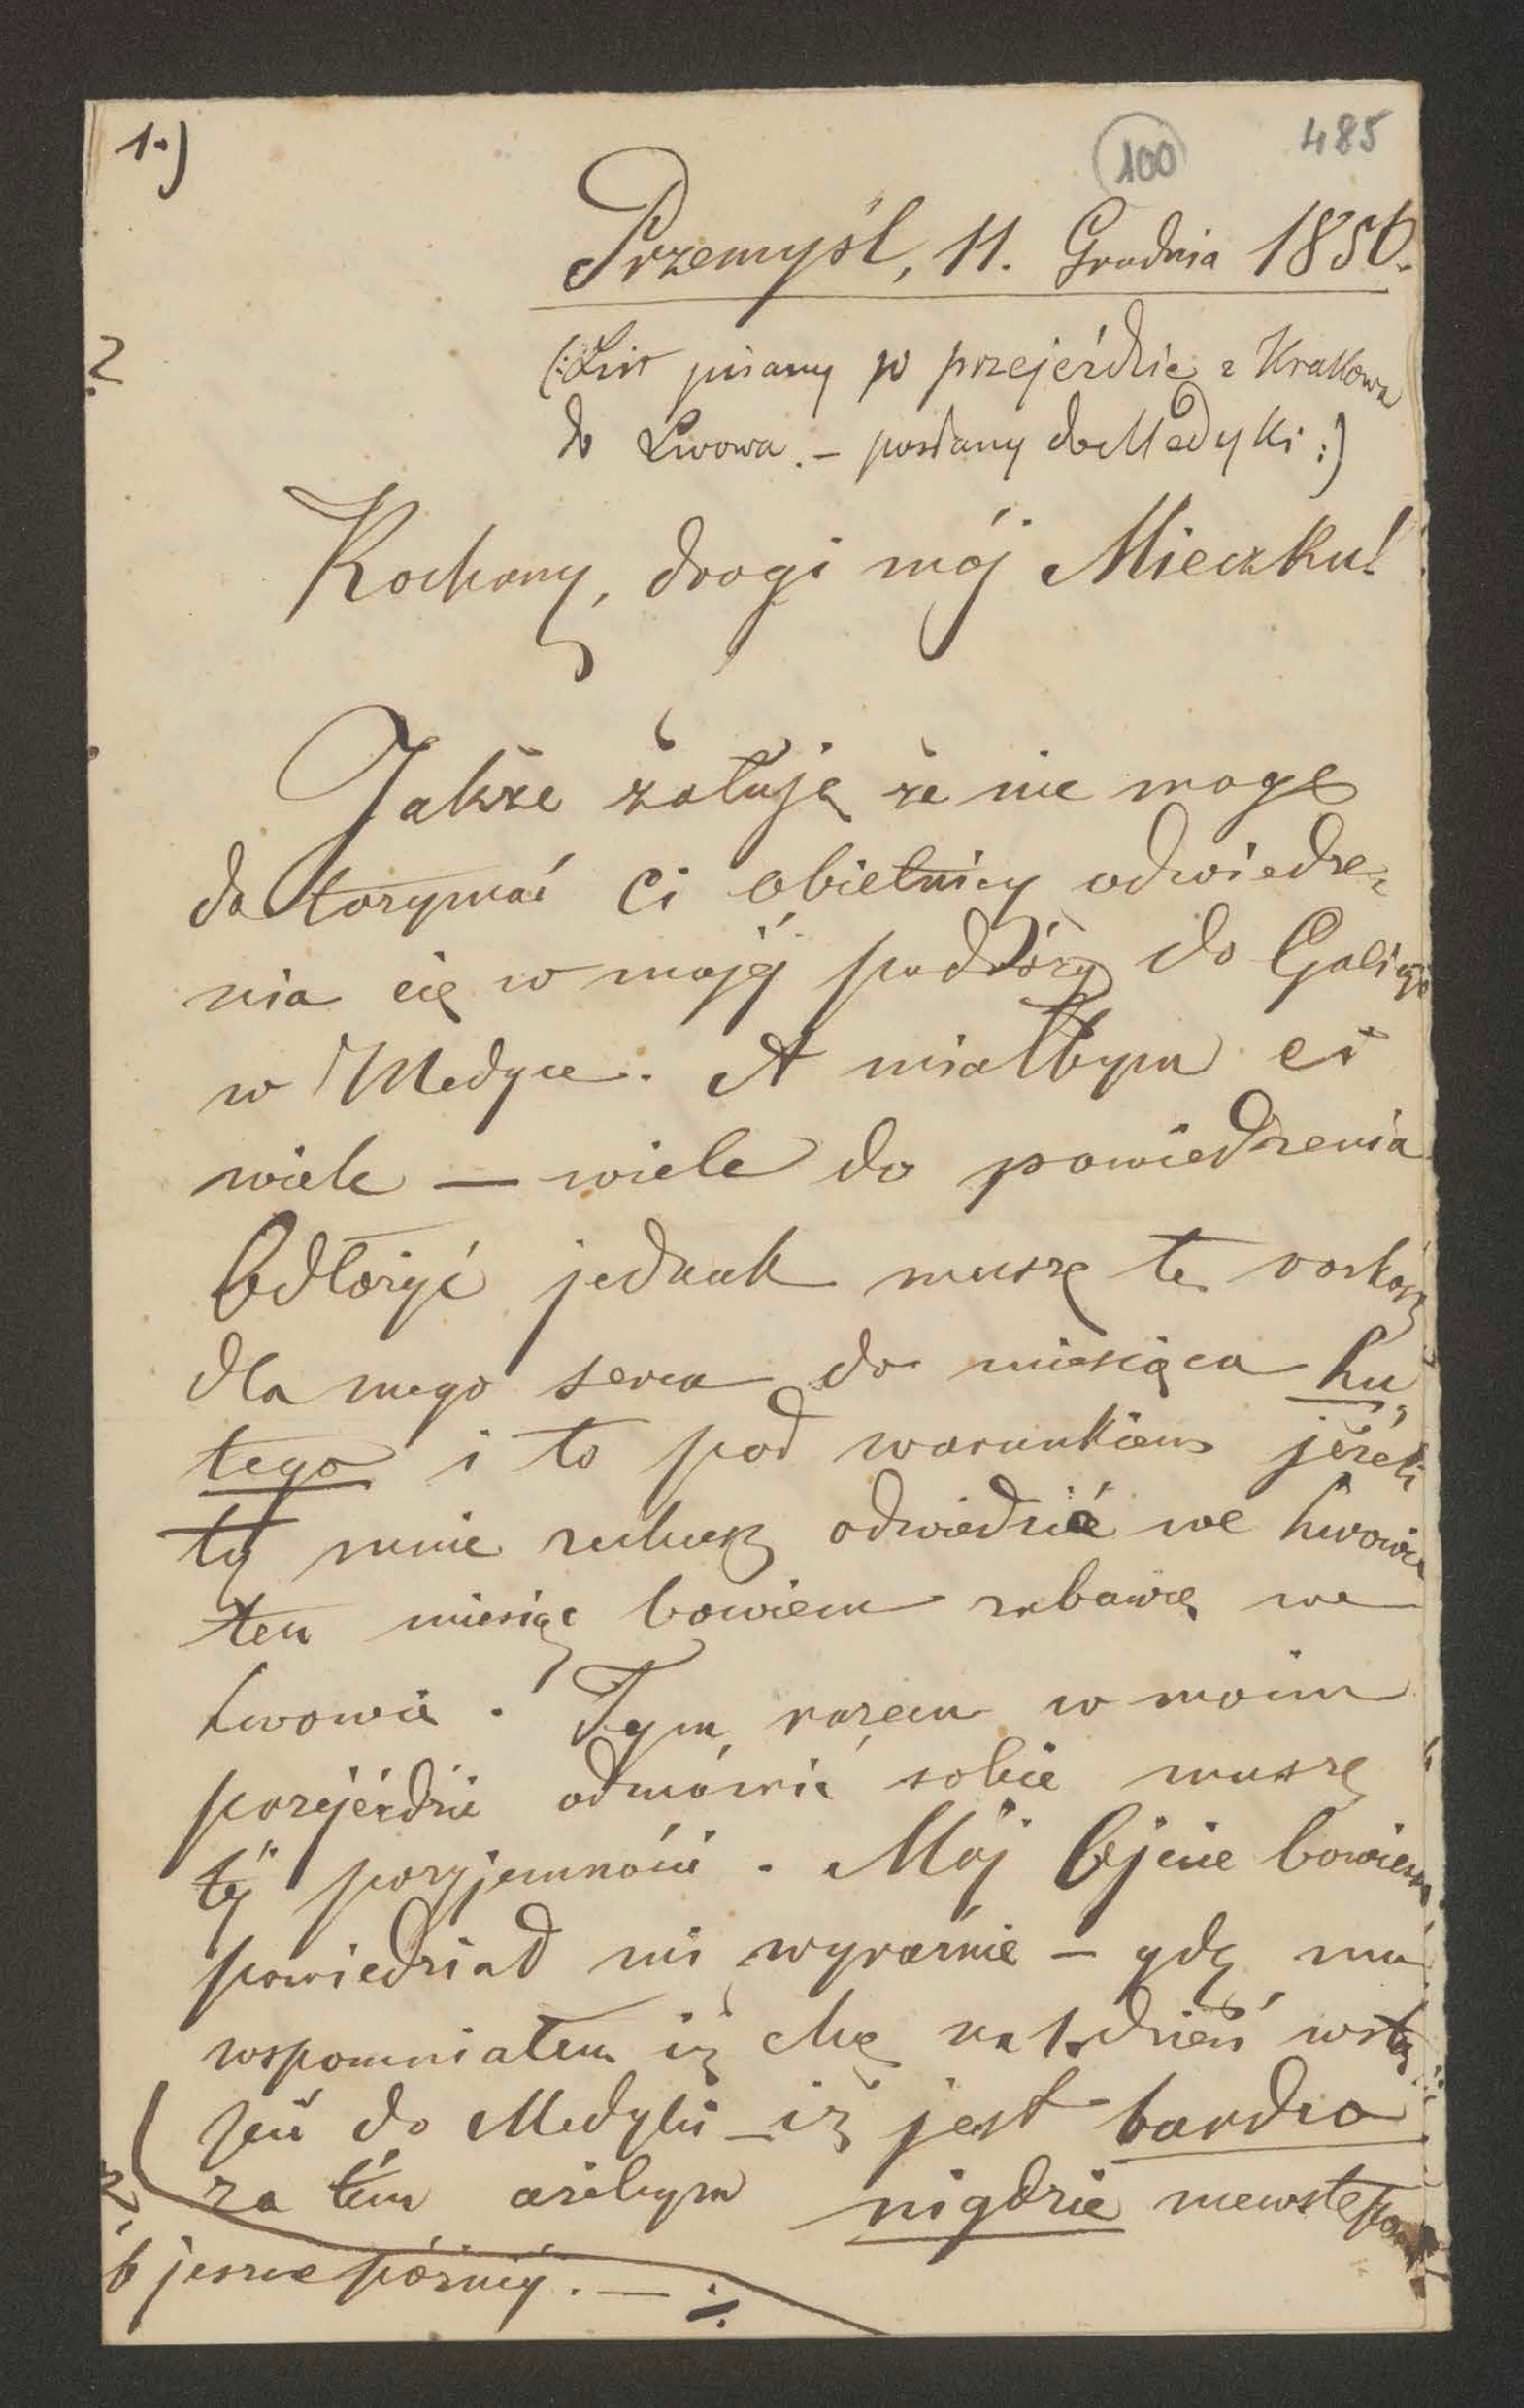 1.)
100
485
Przemyśl, 11. Grudnia 1856.
(: List pisany po przejeździe z Krakowa
do Lwowa. – posłany do Medyki :)
Kochany, drogi mój Mieczku!
Jakże żałuję że nie mogę
dotrzymać Ci obietnicy odwiedze„
nia cię w mojéj podróży do Galicyi
w Medyce. A miałbym ci
wiele — wiele do powiedzenia
Odłożyć jednak muszę tę roskosz
dla mego serca do miesiąca Lu„
tego i to pod warunkiem jeżeli
ty mnie zechcesz odwiedzić we Lwowie
ten miesiąc bowiem zabawię we
Lwowie. Tym razem w moim
przejeździe odmówić sobie muszę
téj przyjemności. Mój Ojciec bowiem
powiedział mi wyraźnie – gdy mu
wspomniałem iż chcę na 1. dzień wstą
pić do Medyki – iż jest bardzo
za tém ażebym nigdzie niewstępował
jeszcze później. — ./.